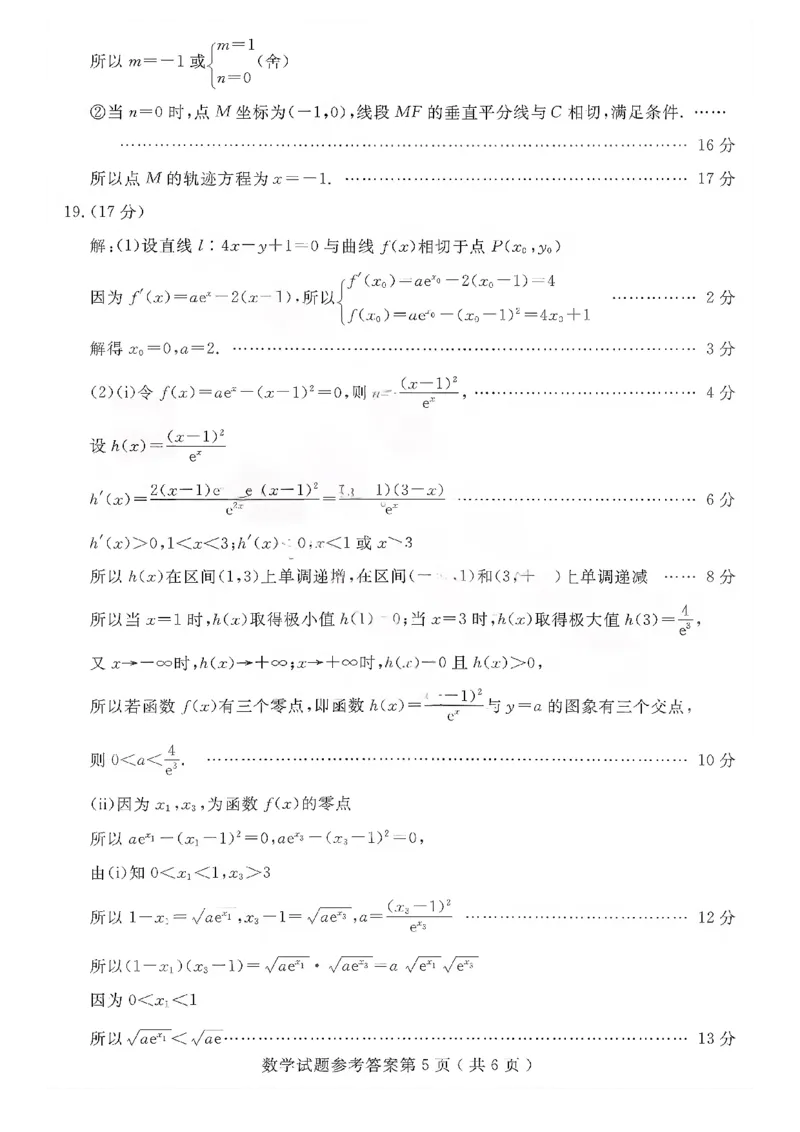 所以 m=-1 或{m=1 n=0 (舍)
②当 n=0 时,点 M 坐标为(-1,0),线段 MF 的垂直平分线与 C 相切,满足条件. ……
…………………………………………………………………… 16 分
所以点 M 的轨迹方程为 x=-1. …………………………………… 17 分
19.(17 分)
解:(1)设直线 l:4x-y+1=0 与曲线 f(x)相切于点 P(x₀,y₀)
因为 f′(x)=aeˣ-2(x-1),所以{f′(x₀)=ae^{x₀}-2(x₀-1)=4 f(x₀)=ae^{x₀}-(x₀-1)²=4x₀+1 …………… 2 分
解得 x₀=0,a=2. …………………………………………………… 3 分
(2)(ⅰ)令 f(x)=aeˣ-(x-1)²=0,则 =(x-1)²/eˣ, ………………………… 4 分
设 h(x)=(x-1)²/eˣ
h′(x)=2(x-1)e e (x-1)²/e^{2x}= 1)(3-x)/eˣ ………………………… 6 分
h′(x)>0,1<x<3;h′(x) 0,x<1 或 x 3
所以 h(x)在区间(1,3)上单调递增,在区间(- ,1)和(3,+ )上单调递减 …… 8 分
所以当 x=1 时,h(x)取得极小值 h(1) 0;当 x=3 时,h(x)取得极大值 h(3)=4/e³,
又 x→-∞时,h(x)→+∞;x→+∞时,h(x)→0 且 h(x)>0,
所以若函数 f(x)有三个零点,即函数 h(x)= -1)²/eˣ 与 y=a 的图象有三个交点,
则 0<a<4/e³. …………………………………………………… 10 分
(ⅱ)因为 x₁,x₃,为函数 f(x)的零点
所以 ae^{x₁}-(x₁-1)²=0,ae^{x₃}-(x₃-1)²=0,
由(ⅰ)知 0<x₁<1,x₃>3
所以 1-x₁=√(ae^{x₁}),x₃-1=√(ae^{x₃}),a=(x₃-1)²/e^{x₃} ………………………… 12 分
所以(1-x₁)(x₃-1)=√(ae^{x₁})·√(ae^{x₃})=a√(e^{x₁})√(e^{x₃})
因为 0<x₁<1
所以√(ae^{x₁})<√(ae)…………………………………………………… 13 分
数学试题参考答案第 5 页(共 6 页)